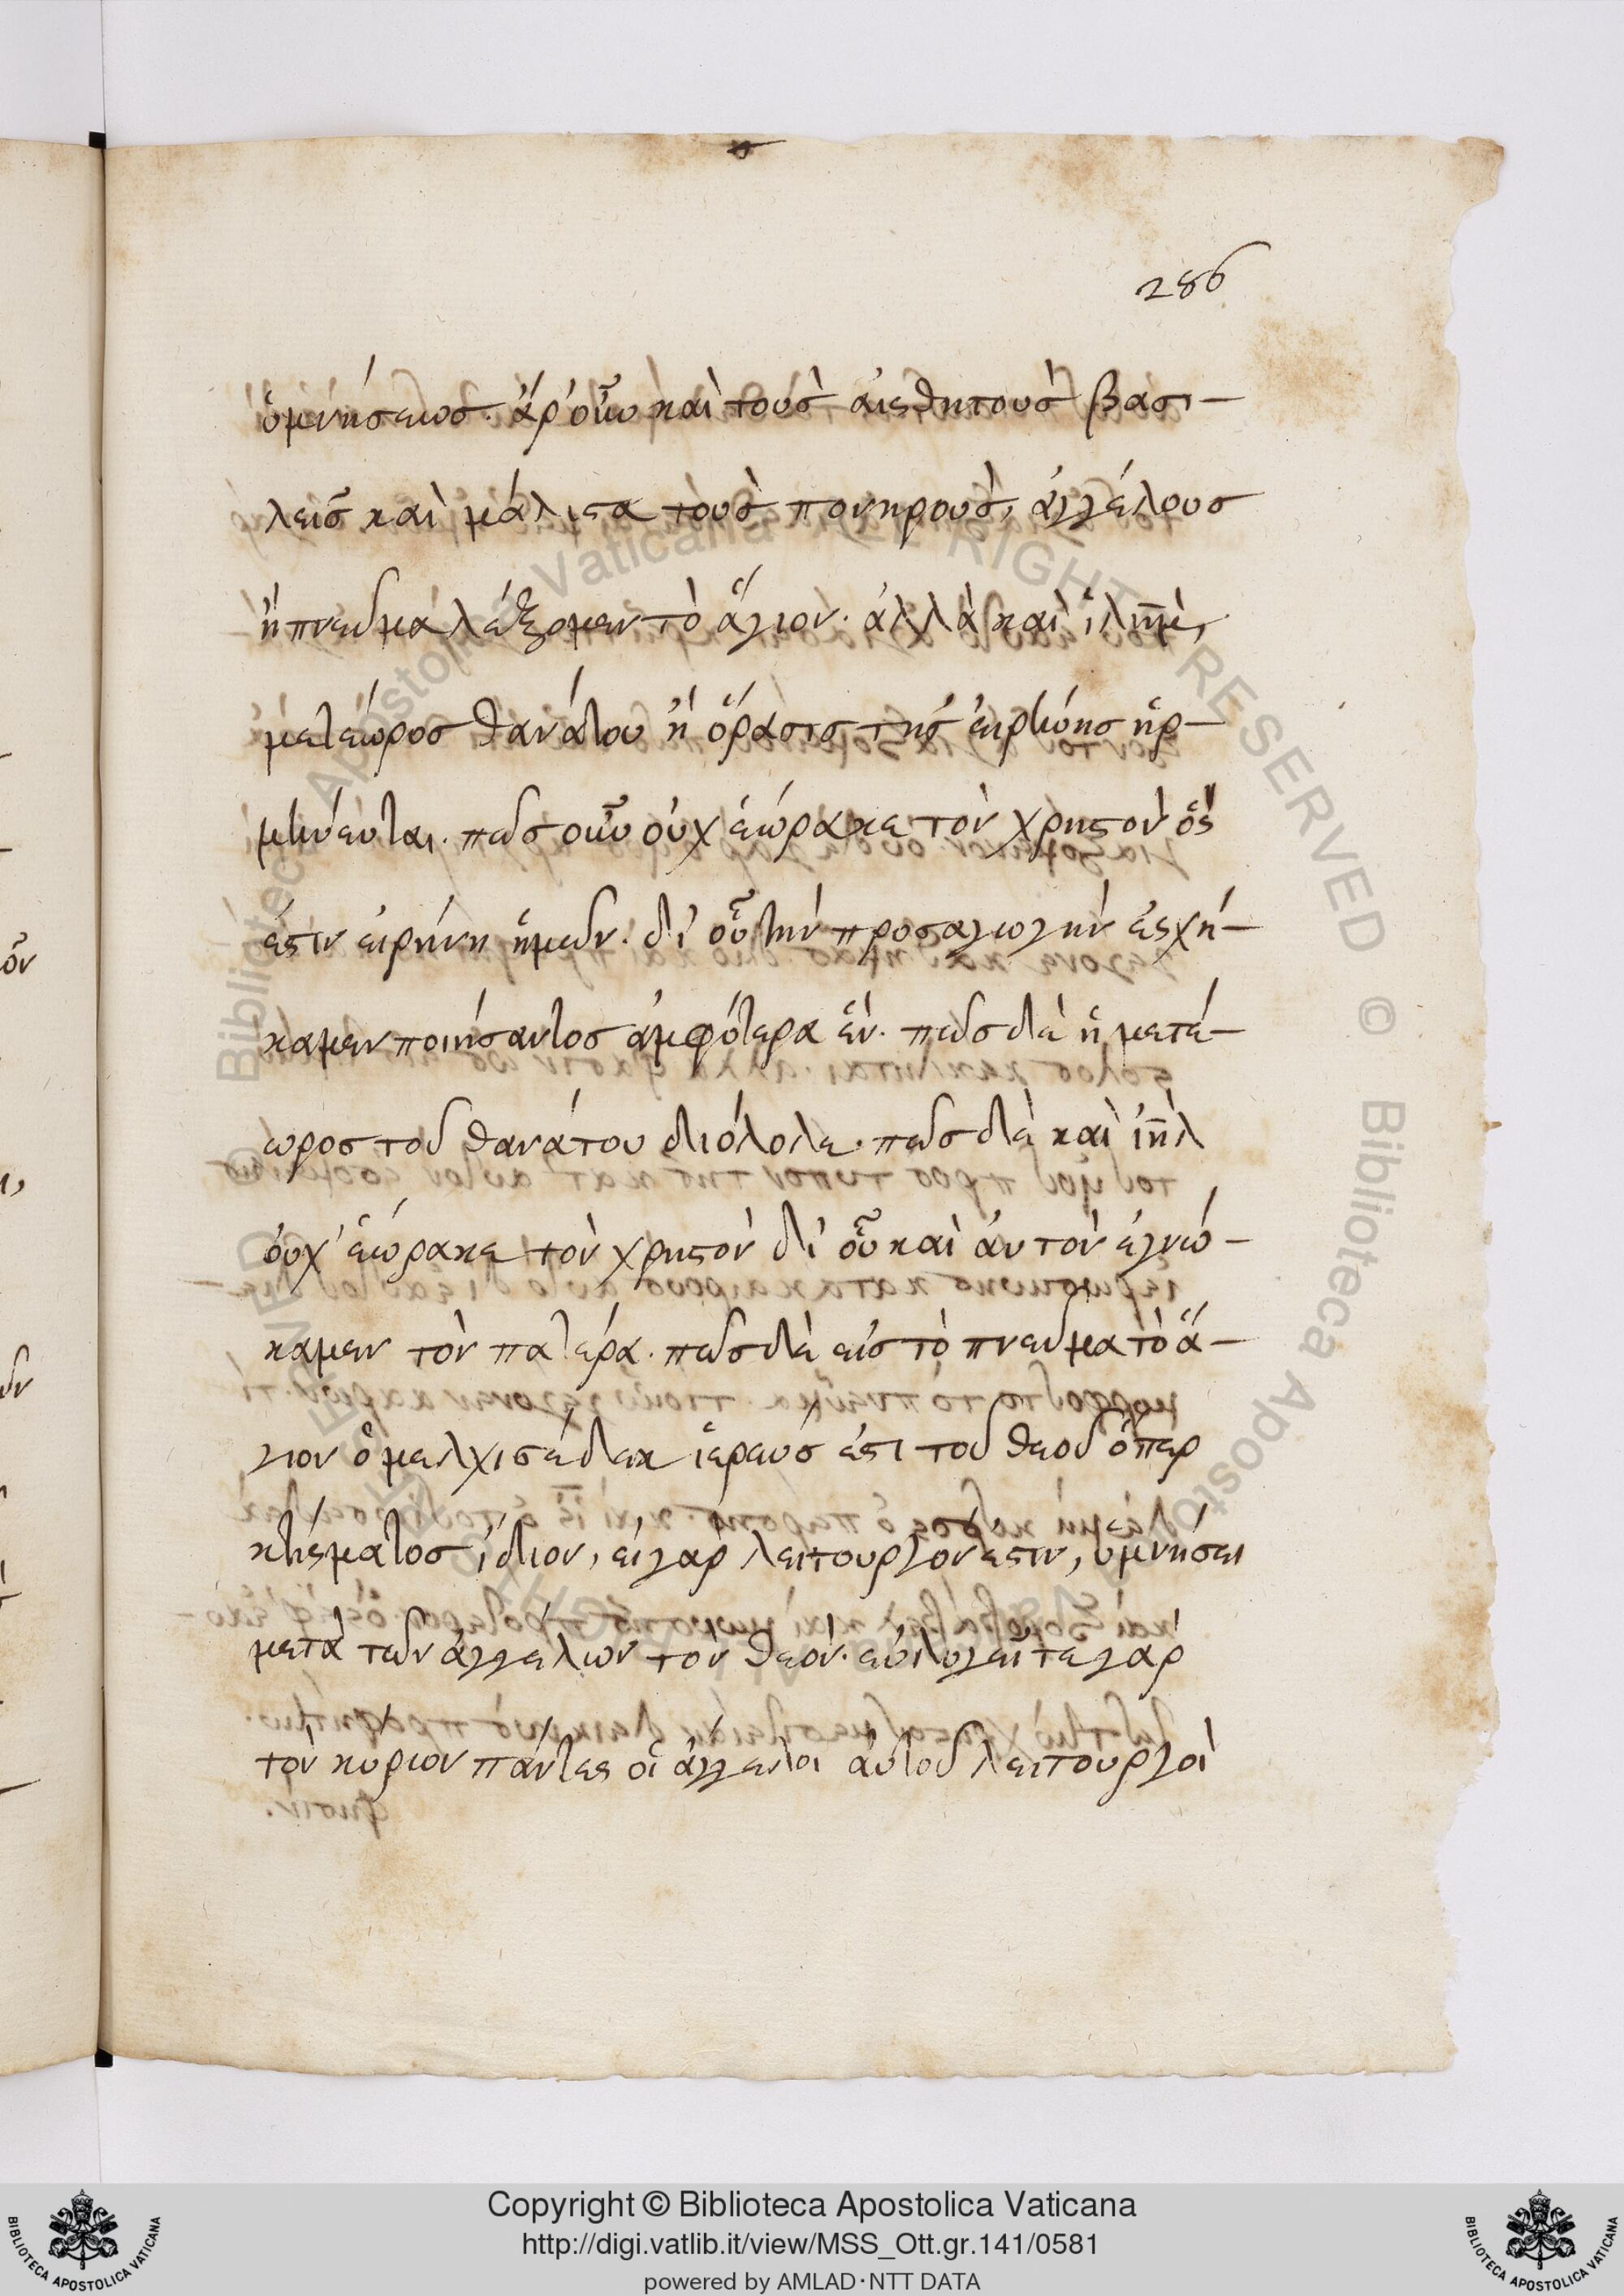 286
ὑμνήσεως. ἆρ' οὖν καὶ τοὺς αἰσθητοὺς βασι-
λεῖς καὶ μάλιστα τοὺς πονηροὺς, ἀγγέλους
ἢ πνεῦμα λέξομεν τὸ ἅγιον. ἀλλὰ καὶ ἱλημ̀,
μετέωρος θανάτου ἡ ὅρασις τῆς εἰρήνης ἑρ-
μήνευται. πῶς οὖν οὐχ ἑώρακε τὸν χρηστὸν ὅς
ἐστιν εἰρήνη ἡμῶν. δι' οὗ τὴν προσαγωγὴν ἐσχή-
καμεν ποιήσαντος ἀμφότερα ἕν. πῶς δὲ ἡ μετέ-
ωρος τοῦ θανάτου διόλοτε. πῶς δὲ καὶ ἰηλ
οὐχ' ἑώρακε τὸν χρηστὸν δι' οὗ καὶ αὐτὸν ἐγνώ-
καμεν τὸν πατέρα. πῶς δὲ εἰς τὸ πνεῦμα τὸ ἅ-
γιον ὁ μελχισέδεκ ἱερεύς ἐστι τοῦ θεοῦ ὅπερ
κτίσματος ἴδιον, εἰ γὰρ λειτουργόν ἐστιν, ὑμνήσει
μετὰ τῶν ἀγγέλων τὸν θεόν. εὐλογεῖτε γὰρ
τὸν κύριον πάντες οἱ ἄγγελοι αὐτοῦ λειτουργοὶ
Copyright © Biblioteca Apostolica Vaticana
http://digi.vatlib.it/view/MSS_Ott.gr.141/0581
powered by AMLAD·NTT DATA
BIBLIOTECA APOSTOLICA VATICANA
BIBLIOTECA APOSTOLICA VATICANA